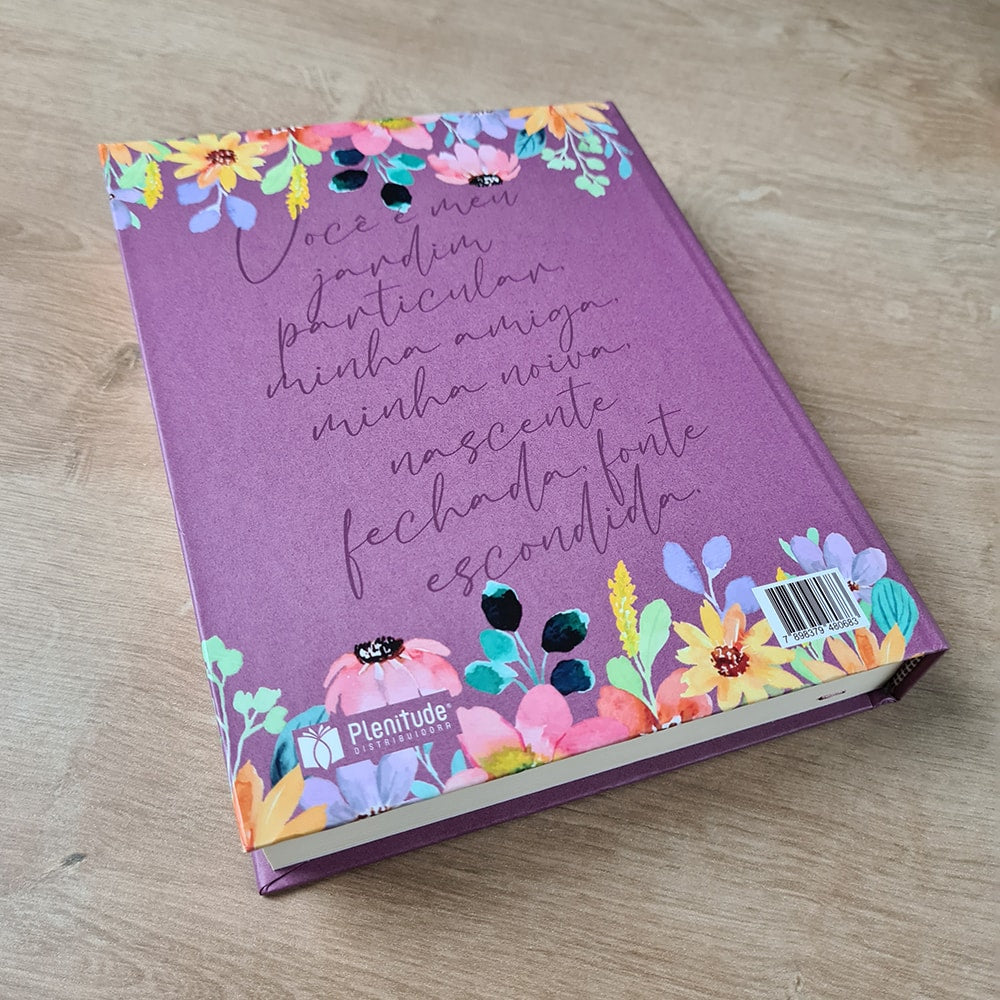 Você é meu
jardim
particular,
minha amiga,
minha noiva,
nascente
fechada, fonte
escondida.
7 898379 480683
Plenitude®
DISTRIBUIDORA